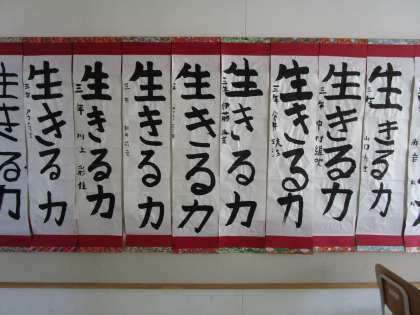 生きる力
生きる力
三年
生きる力
三年 川上
生きる力
生きる力
生きる力
三年 伊藤
生きる力
三年
生きる力
三年 中村
生きる力
三年 山口